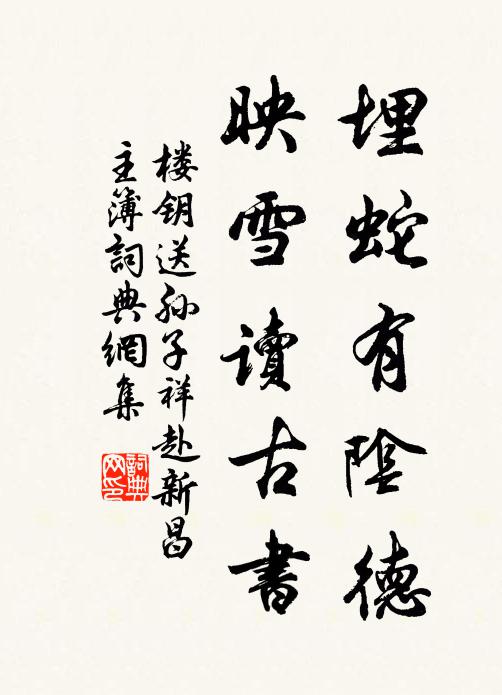 埋蛇有陰德
映雪讀古書
楼钥送孙子祥赴新昌
主簿詞典網集
詞典网印